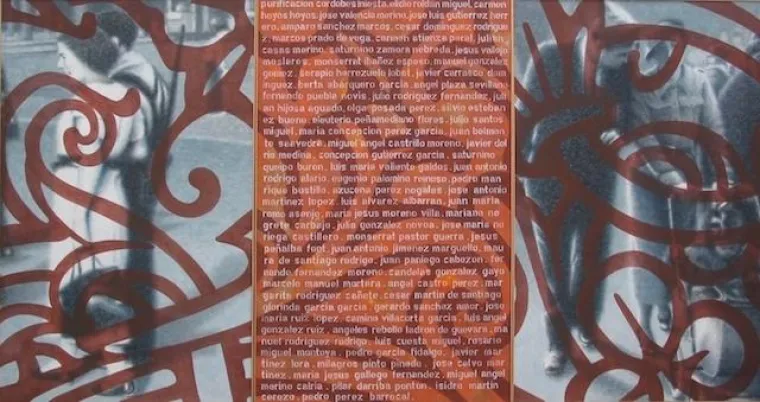 purificacion cordobes iniesta. elidio roldan miguel. carmen
hoyos hoyos. jose valencia merino. jose luis gutierrez herr
ero. amparo sanchez marcos. cesar dominguez rodrigue
z. marcos prado de vega. carmen atienza peral. julian
casas merino. saturnino zamora nebreda. jesus vallejo
mosleres. monserrat ibañez espeso. manuel gonzalez
gomez. serapio herrezuelo lobat. javier carrasco dom
inguez. berta abarquero garcia. angel plaza sevillano
fernando puebla novis. julio rodriguez fernandez. juli
an hijosa aguado. olga posada perez. silvio esteban
ez bueno. eleuterio peñamediano flores. julio santos
miguel. maria concepcion perez garcia. juan belmon
te saavedra. miguel angel castrillo moreno. javier del
rio medina. concepcion gutierrez garcia. saturnino
queipo buron. luis maria valiente galdos. juan antonio
rodrigo elario. eugenio palomino reinoso. pedro man
rique bustillo. azucena perez nogales. jose antonio
martinez lopez. luis alvarez albarran. juan maria
ramo asenjo. maria jesus moreno villa. mariano ne
grete carbajo. julia gonzalez novoa. jose maria no
riega castillero. monserrat pastor guerra. jesus
peñalba font. juan antonio jimenez marguello. mau
ra de santiago rodrigo. juan paniego cabezon. fer
nando fernandez moreno. candelas gonzalez gayo
marcelo manuel martera. angel castro perez. mar
garita rodriguez cañete. cesar martin de santiago
glorinda garcia garcia. gerardo sanchez amor. jose
maria ruiz lopez. camino villacorta garcia. luis angel
gonzalez ruiz. angeles rebollo ladron de guevara. ma
nuel rodriguez rodrigo. luis cuesta miguel. rosario
miguel montoya. pedro garcia fidalgo. javier mar
tinez lora. milagros pinto pinedo. jose calvo mar
tinez. maria jesus gallego fernandez. miguel angel
merino calria. pilar darriba ponton. isidro martin
cerezo. pedro perez barrocal.